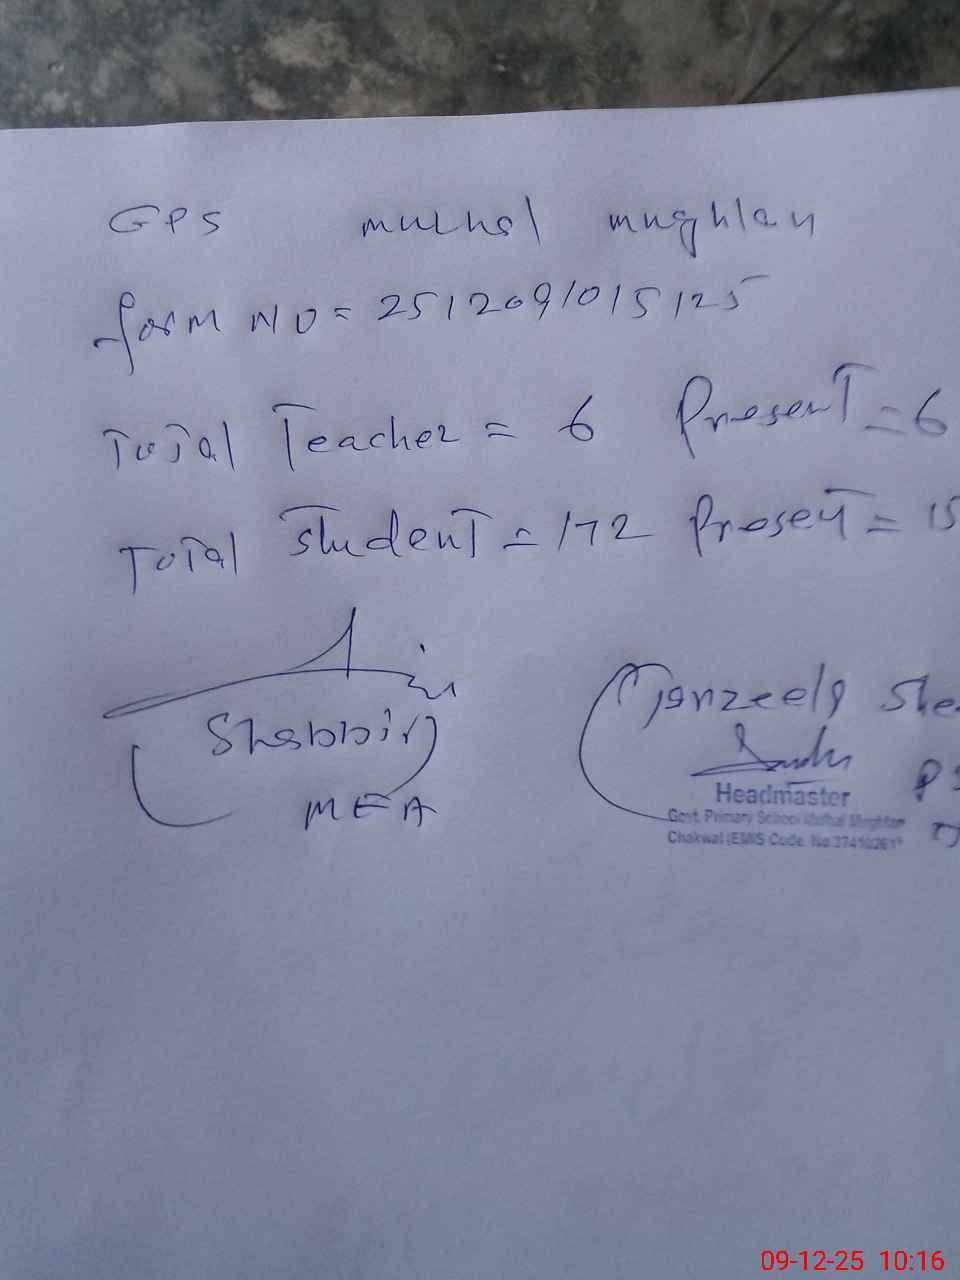 GPS mulhal mughlan
form NO = 2512091015125
Total Teacher = 6 Present = 6
Total Student = 172 Present = 15
Shabbir
MEA
Tanzeela She
Headmaster
Govt. Primary School Mulhal Mughlan
Chakwal (EMIS Code. No.37410261)
09-12-25 10:16